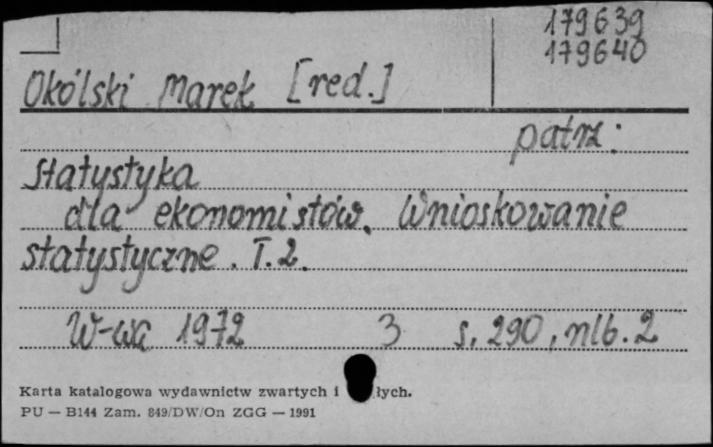 179639
179640
Okólski Marek [red.]
patrz:
Statystyka
dla ekonomistów. Wnioskowanie
statystyczne. T.2.
W-wa 1972 3 s. 290, nlb. 2
Karta katalogowa wydawnictw zwartych i łych.
PU — B144 Zam. 849/DW/On ZGG — 1991